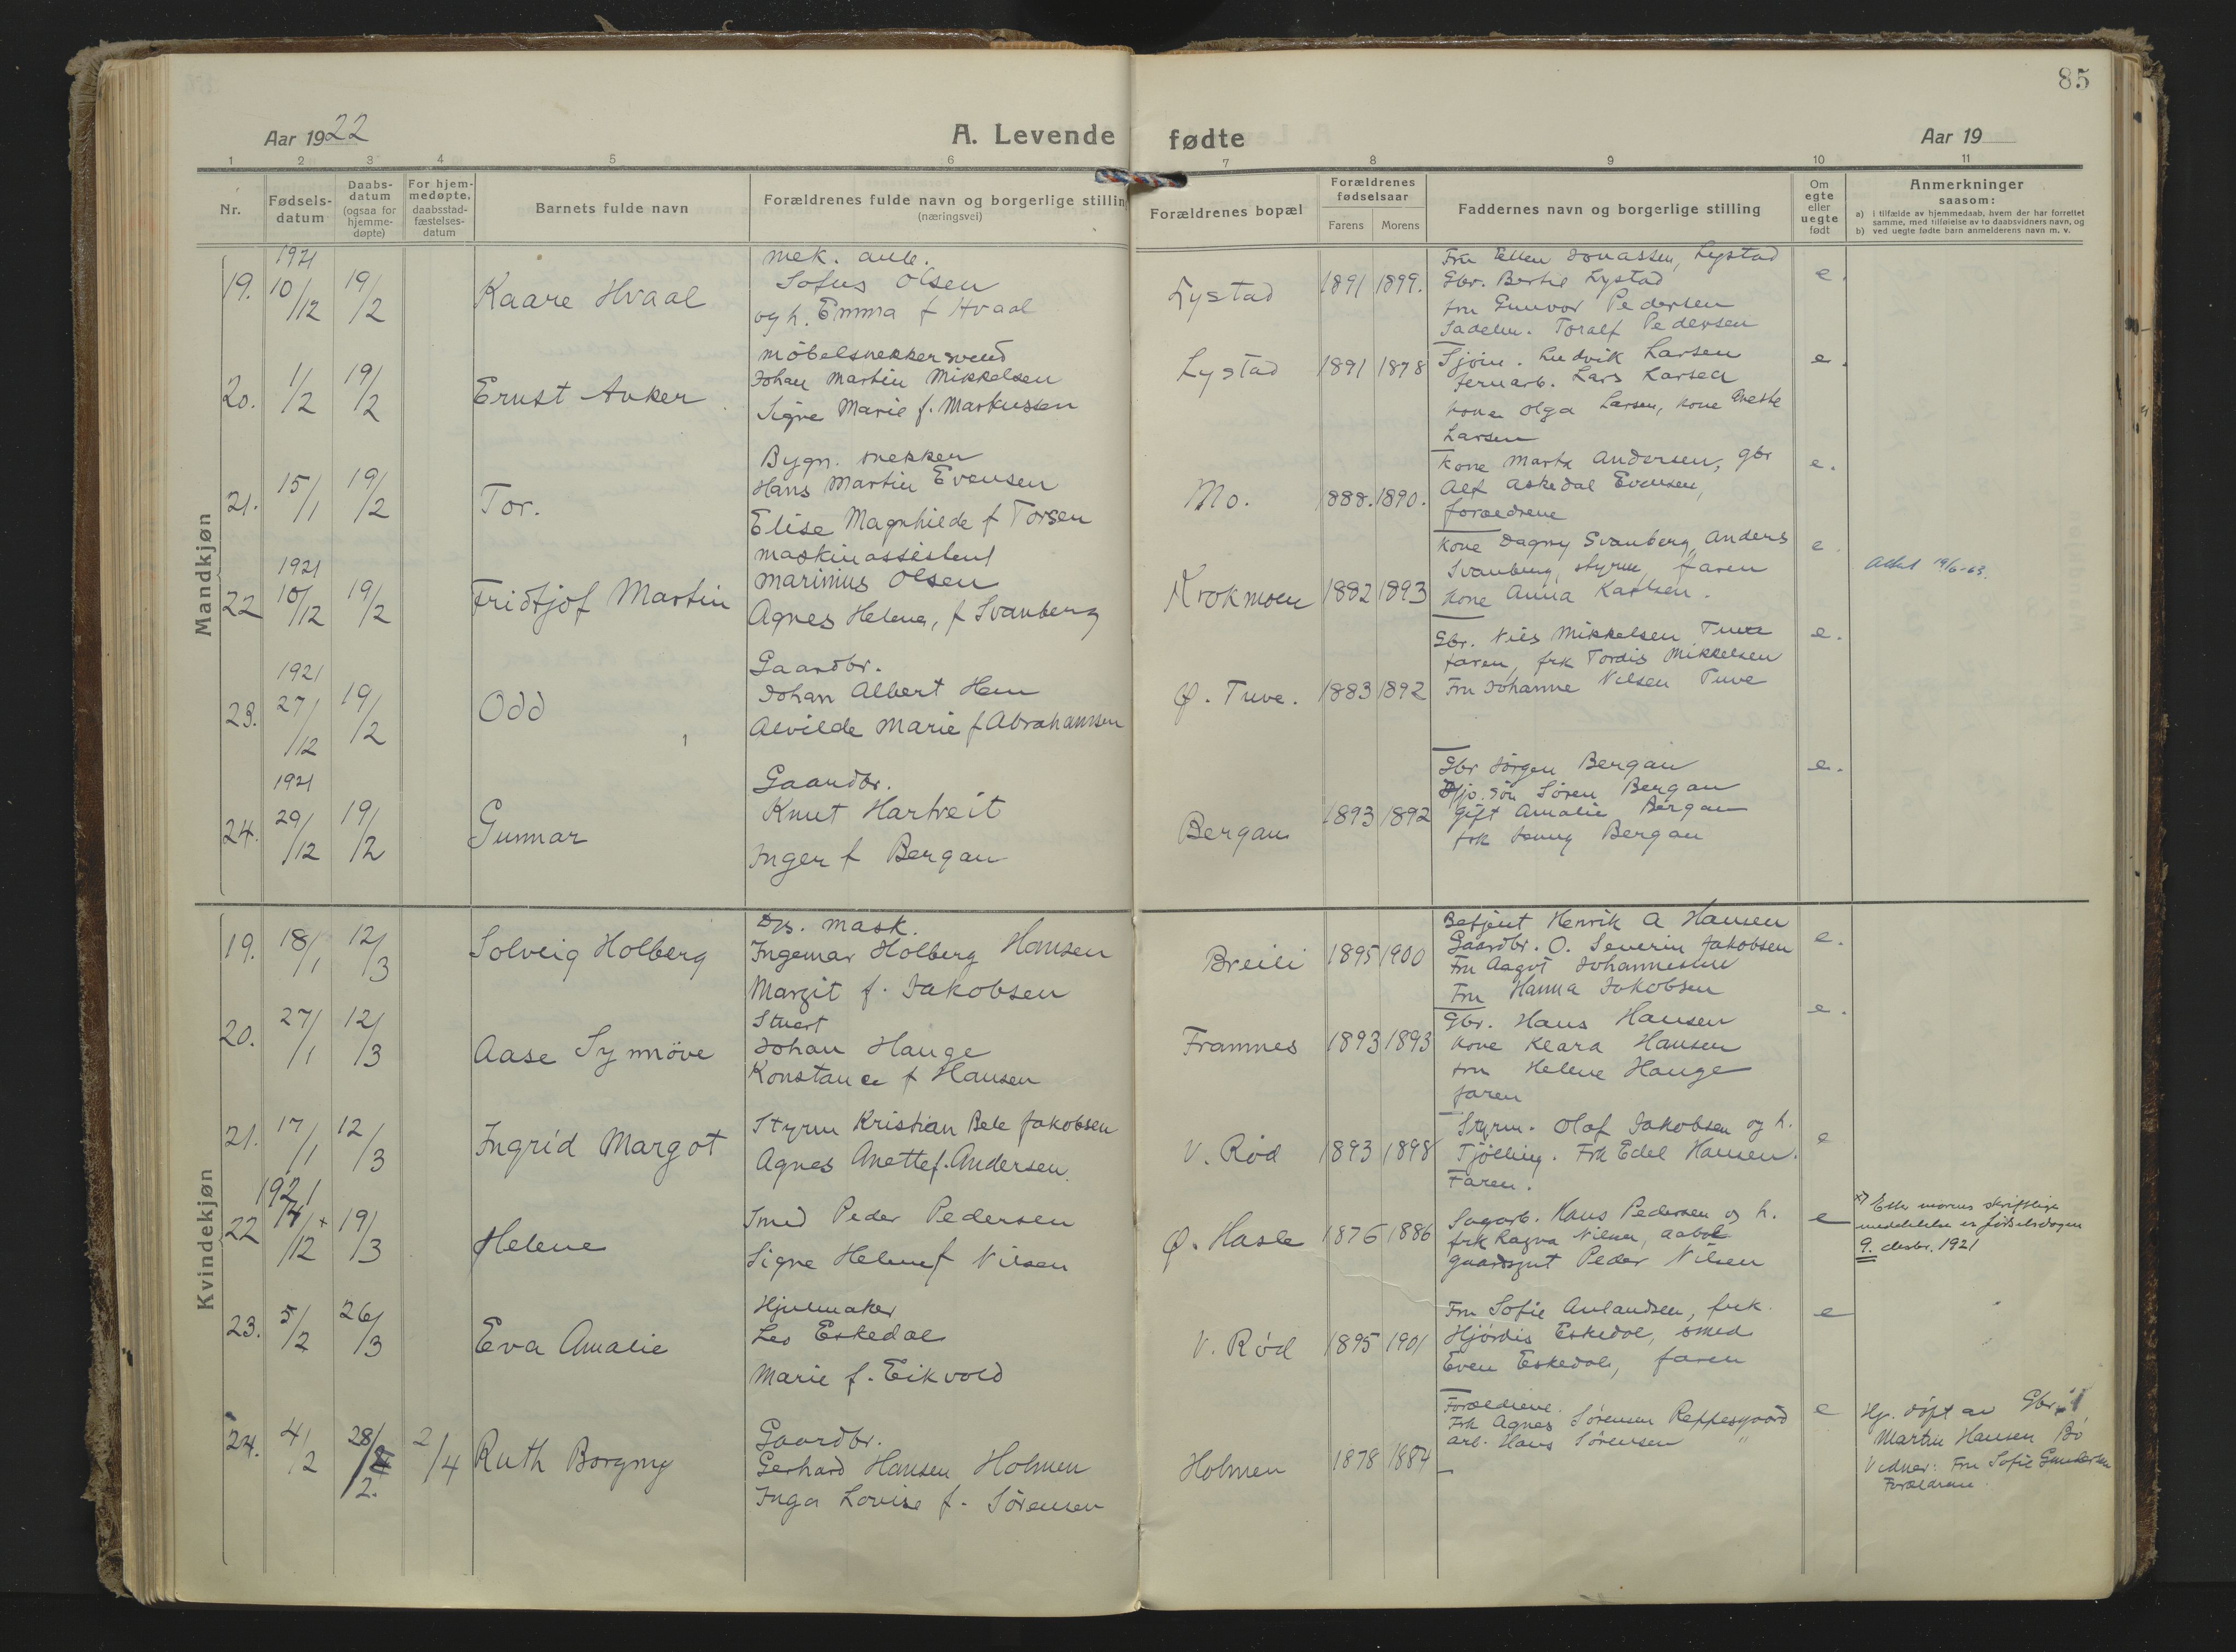 85
Aar 1922
A. Levende fødte
Aar 19
1 2 3 4 5 6 7 8 9 10 11
Nr.
Fødsels-
datum
Daabs-
datum
(ogsaa for
hjemme-
døpte)
For hjem-
medøpte,
daabsstad-
fæstelses-
datum
Barnets fulde navn
Forældrenes fulde navn og borgerlige stillin
(næringsvei)
Forældrenes bopæl
Forældrenes
fødselsaar
Farens Morens
Faddernes navn og borgerlige stilling
Om
egte
eller
uegte
født
Anmerkninger
saasom:
a) i tilfælde av hjemmedaab, hvem der har forrettet
samme, med tilføielse av to daabsvidners navn, og
b) ved uegte fødte barn anmelderens navn m. v.
Mandkjøn
19. 1921 10/12 19/2
Kaare Hvaal
mek. arb.
Sofus Olsen
og h. Emma f Hvaal
Lystad
1891 1899.
Fru Ellen Jonassen, Lystad
Gbr. Bertil Lystad
fru Gunvor Pedersen
Sadelm. Toralf Pedersen
e.
20. 1/2 19/2
Ernst Anker
Möbelsnekkersvend
Johan Martin Mikkelsen
Signe Marie f. Markussen
Lystad
1891 1878
Sjöm. Ludvik Larsen
Jernarb. Lars Larsen
kone Olga Larsen, kone
Larsen
e.
21. 15/1 19/2
Tor.
Bygn. snekker
Hans Martin Evensen
Elise Magnhilde f Torsen
Mo.
1888. 1890.
Kone Marta Andersen, gbr
Alf Askedal Evensen,
foraeldrene
e.
22 1921 10/12 19/2
Fridtjof Martin
Maskinassistent
Marinius Olsen
Agnes Helene, f Svanberg
Krokmoen
1882 1893
Kone Dagny Svanberg, Anders
Svanberg, styrm, faren
Kone Anna Karlsen.
e.
Attest 19/6-63.
23. 1921 27/12 19/2
Odd
Gaardbr.
Johan Albert Hem
Alvilde Marie f Abrahamsen
Ø. Tuve.
1883 1892
Gbr. Nils Mikkelsen Tuve
faren, frk Tordis Mikkelsen
Fru Johanne Nilsen Tuve
e.
24. 1921 29/12 19/2
Gunnar
Gaardbr.
Knut Hartveit
Inger f Bergan
Bergan
1893 1892
Gbr Jörgen Bergan
Sören Bergan
gift Amalie Bergan
frk Jenny Bergan
e.
Kvindekjøn
19. 18/1 12/3
Solveig Holberg
Dps. mask.
Ingemar Holberg Hansen
Margit f. Jakobsen
Breili
1895 1900
Betjent Henrik A Hansen
Gaardbr. O. Severin Jakobsen
Fru Aagot Johannessen
Fru Hanna Jakobsen
e.
20. 27/1 12/3
Aase Synnöve
Stuert
Johan Hauge
Konstance f Hansen
Framnes
1893 1893
Gbr. Hans Hansen
Kone Klara Hansen
fru Helene Hauge
faren
e.
21. 17/1 12/3
Ingrid Margot
Styrm Kristian Bele Jakobsen
Agnes Anette f. Andersen.
V. Röd
1893 1898
Styrm. Olaf Jakobsen og h.
Tjölling. Frk Edel Hansen.
Faren.
e
22 1921 /12 x 19/3
Helene
Smed Peder Pedersen
Signe Helene f Nilsen
Ø. Hasle
1876 1886
Sagarb. Hans Pedersen og h.
frk Ragna Nilsen,
gaardsgut Peder Nilsen
e
x) Efter morens skriftlige
meddelelse er födselsdagen
9. desbr. 1921
23. 5/2 26/3
Eva Amalie
Hjulmaker
Leo Eskedal
Marie f. Eikvold
V. Röd
1895 1901
Fru Sofie Anlandsen, frk.
Hjördis Eskedal, smed
Even Eskedal, faren
e
24. 4/2 28/2. 2/4
Ruth Borgny
Gaardbr.
Gerhard Hansen Holmen
Inga Lovise f. Sörensen
Holmen
1878 1884
Foraeldrene.
Frk Agnes Sörensen Reppesgaard
arb. Hans Sörensen "
e
Hj. döpt av Gbr.
Martin Hansen Bö
Vidner: Fru Sofie Gundersen
Foraeldrene